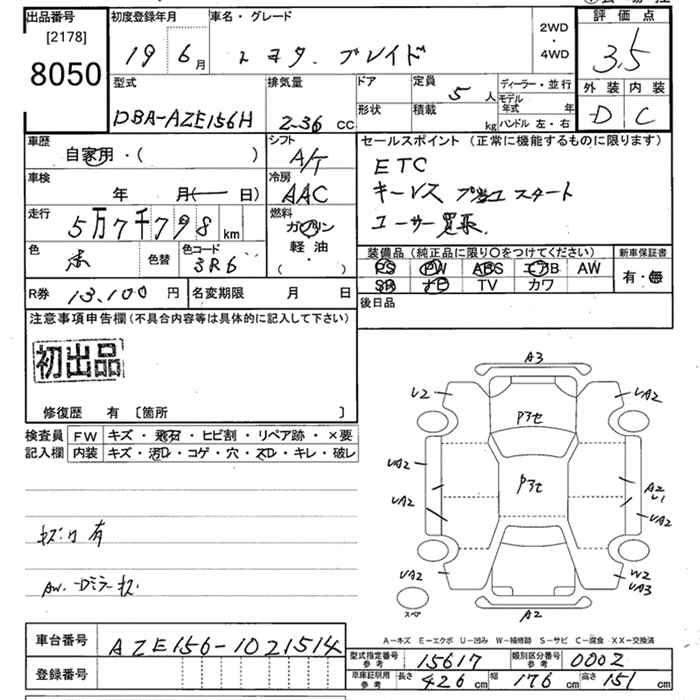 出品番号
[2178]
8050
初度登録年月
19 6月
車名・グレード
トヨタ. ブレイド
2WD
・
4WD
評価点
3.5
外装 内装
D C
型式
DBA-AZE156H
排気量
2-36 cc
ドア
形状
定員
5 人
積載
kg
ディーラー・並行
モデル年式 年
ハンドル 左・右
車歴
自家用・( )
シフト
A/T
車検
年 月( 日)
冷房
AAC
走行
5万7千798 km
燃料
ガソリン
軽油
( ・ )
色
赤
色替
色コード
3R6
セールスポイント(正常に機能するものに限ります)
ETC
キーレス プッシュスタート
ユーザー買取
装備品(純正品に限り〇をつけてください)
PS PW ABS エアB AW
SR ナビ TV カワ
新車保証書
有・無
後日品
R券 13,100 円
名変期限 月 日
注意事項申告欄(不具合内容等は具体的に記入して下さい)
初出品
修復歴 有〔箇所 〕
検査員
記入欄
FW キズ・飛石・ヒビ割・リペア跡・×要
内装 キズ・汚れ・コゲ・穴・スレ・キレ・破レ
キズ凹有
AW. ミラーキズ.
A3
U2
UA2
P3セ
P3セ
UA2
UA2
A2
U1
UA2
UA2
W2
UA3
スペア
A2
A-キズ E-エクボ U-凹み W-補修跡 S-サビ C-腐食 XX-交換済
車台番号
AZE156-1021514
登録番号
型式指定番号
参考
15617
類別区分番号
参考
0002
車庫証明用
参考
長さ 426 cm 幅 176 cm 高さ 151 cm